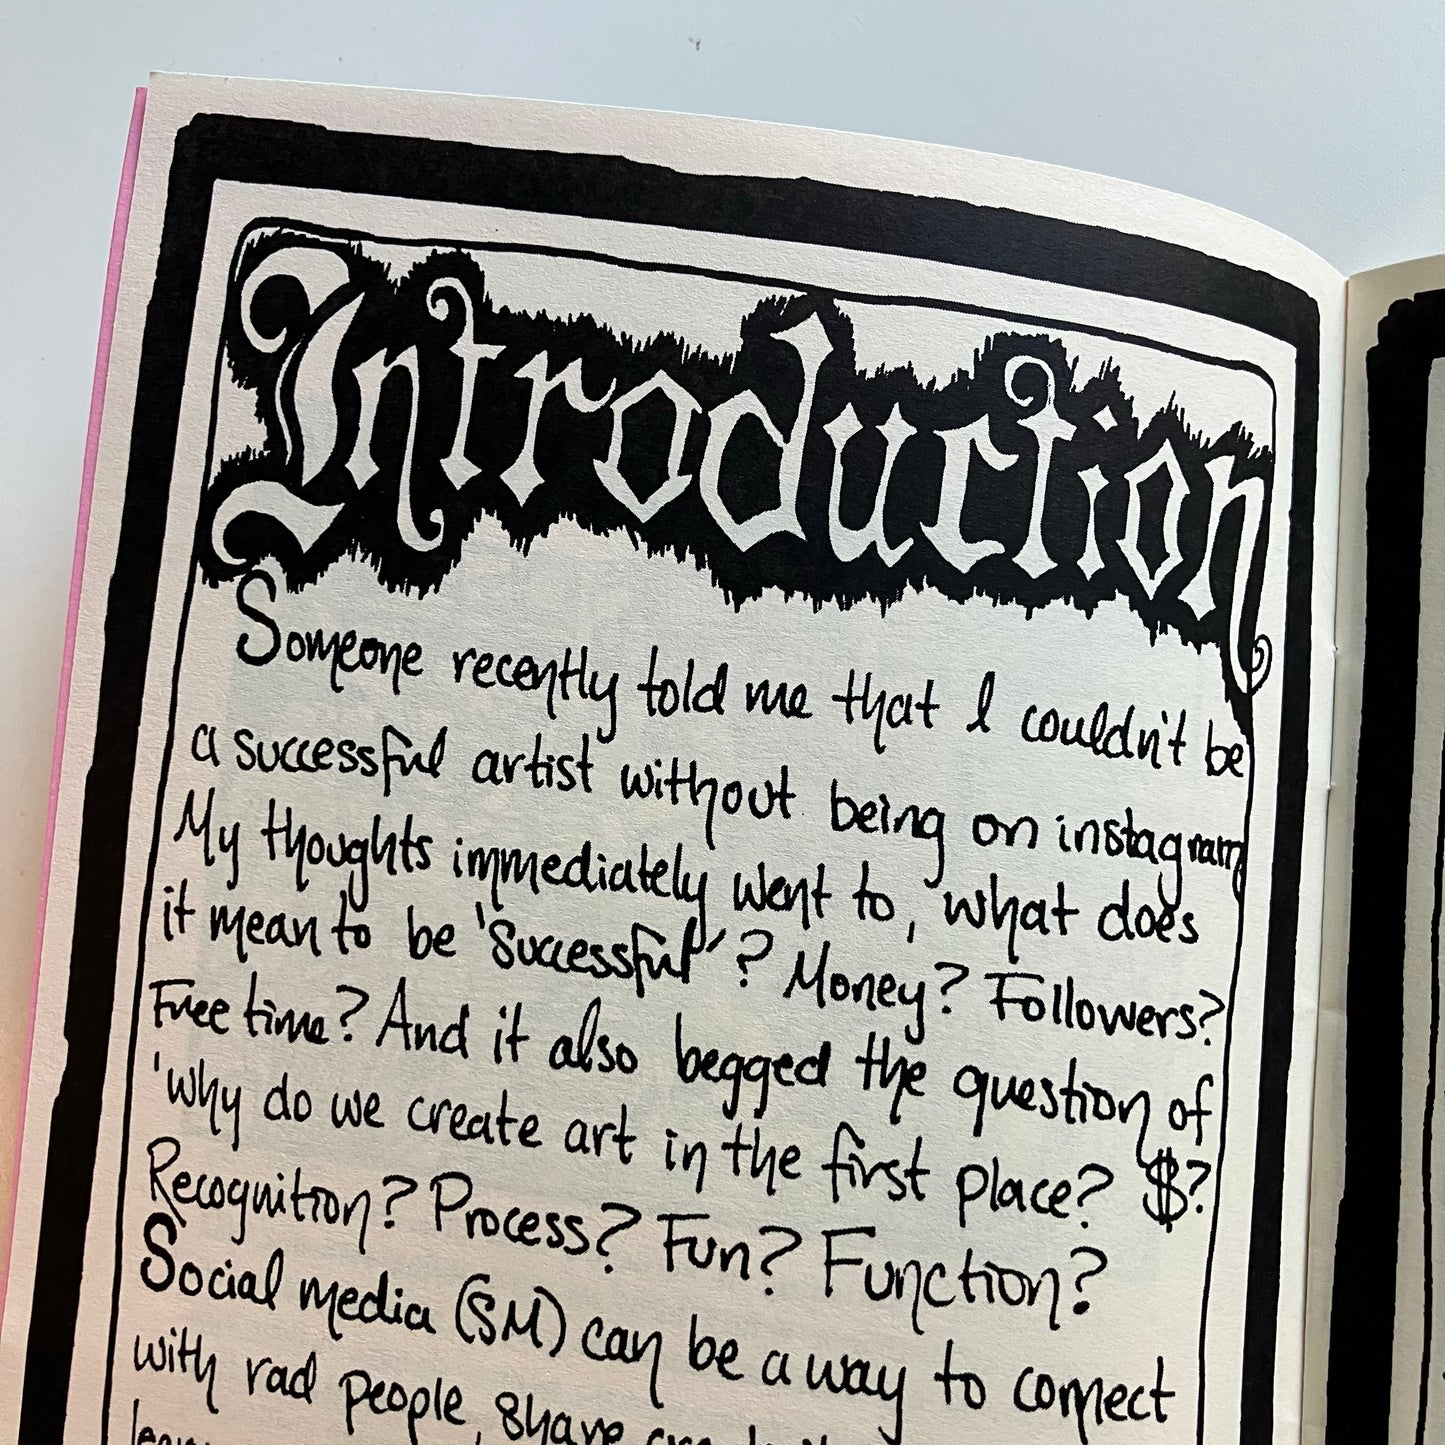 Introduction
Someone recently told me that I couldn't be
a successful artist without being on instagram,
My thoughts immediately went to, what does
it mean to be 'successful'? Money? Followers?
Free time? And it also begged the question of
'why do we create art in the first place? $?
Recognition? Process? Fun? Function?
Social media (SM) can be a way to connect
with rad people, share